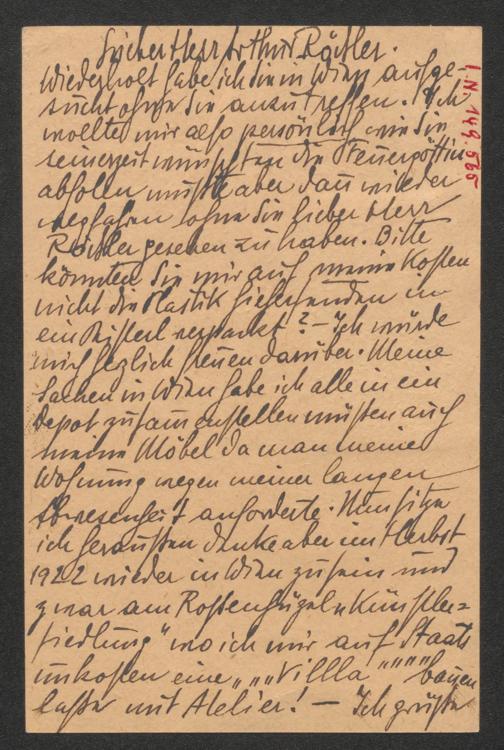 Lieber Herr Arthur Rößler.
Wiederholt habe ich Sie in Wien aufge-
sucht ohne Sie anzutreffen. Ich
wollte mir also persönlich wie Sie
seinerzeit wünschten die Feuergöttin
abholen mußte aber dan wieder
wegfahren ohne Sie lieber Herr
Rößler gesehen zu haben. Bitte
könnten Sie mir auf meine Kosten
nicht die Plastik hiehersenden in
ein Kisterl verpackt? – Ich würde
mich herzlich freuen darüber. Meine
Sachen in Wien habe ich alle in ein
Depot zusamenstellen müßen auch
meine Möbel da man meine
Wohnung wegen meiner langen
Abwesenheit anforderte. Nun sitze
ich heraußen denke aber im Herbst
1922 wieder in Wien zu sein und
zwar am Rosenhügel „Künstler=
siedlung" wo ich mir auf Staats
unkosten eine „„„Villa"""" bauen
laße mit Atelier! – Ich grüße
I.N. 149.565